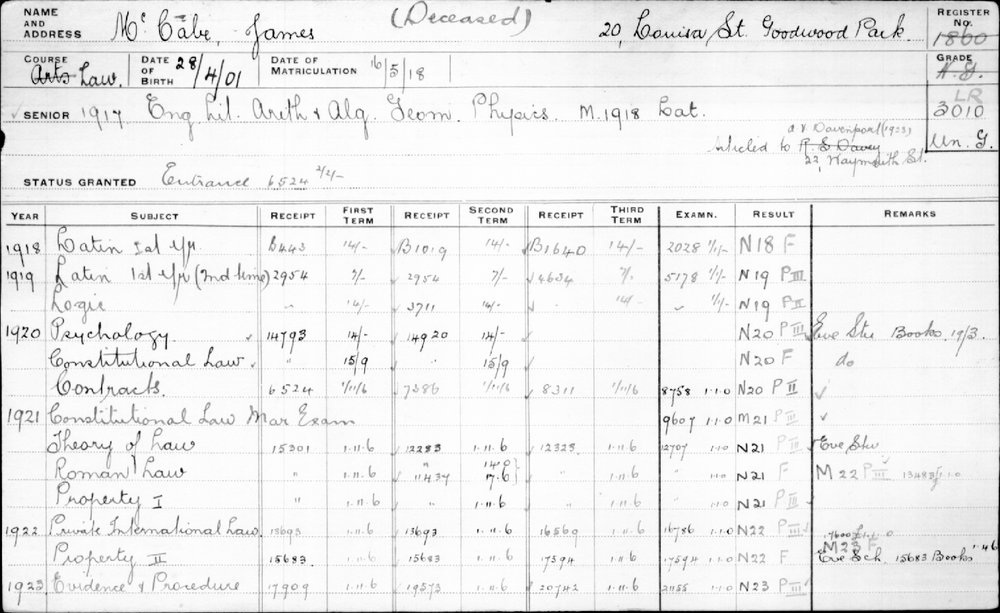 (Deceased)
NAME AND ADDRESS McCabe, James 20, Louisa St. Goodwood Park.
REGISTER No. 1860
COURSE Arts Law. DATE OF BIRTH 28/4/01 DATE OF MATRICULATION 16/5/18
GRADE N.G.
LR
SENIOR 1917 Eng Lit. Arith & Alg. Geom. Physics. M. 1918 Lat. 3010
Davenport (1923)
Articled to R. S. Davey Un. G.
22, Waymouth St.
STATUS GRANTED Entrance 6524 2/2/-
YEAR SUBJECT RECEIPT FIRST TERM RECEIPT SECOND TERM RECEIPT THIRD TERM EXAMN. RESULT REMARKS
1918 Latin 1st yr. B443 14/- B1019 14/- B1640 14/- 2028 1/1/- N18 F
1919 Latin 1st yr (2nd time) 2954 7/- 2954 7/- 4634 7/- 5178 1/1/- N19 P III
Logic " 14/- 3711 14/- 14/- 1/1/- N19 P II
1920 Psychology 14793 14/- 14920 14/- N20 P III Eve Stu Books 19/3.
Constitutional Law " 15/9 15/9 N20 F do
Contracts. 6524 1/11/6 7386 1/11/6 8311 1/11/6 8758 1.1.0 N20 P II
1921 Constitutional Law Mar Exam 9607 1.1.0 M21 P III
Theory of Law 15301 1.11.6 12283 1.11.6 12325 1.11.6 12707 1.1.0 N21 P II Eve Stu
Roman Law " 1.11.6 11437 17.6 " 1.11.6 " N21 F M 22 P III 13483 1.1.0
Property I " 1.11.6 1.11.6 " 1.11.6 N21 P II
1922 Private International Law 15693 1.11.6 15693 1.11.6 16569 1.11.6 16786 1.1.0 N22 P III
M23 F
Property II 15683 1.11.6 15683 1.11.6 17594 1.11.6 17594 1.1.0 N22 F Eve Sch. 15683 Books
1923 Evidence & Procedure 17909 1.11.6 19373 1.11.6 20742 1.11.6 21155 1.1.0 N23 P III